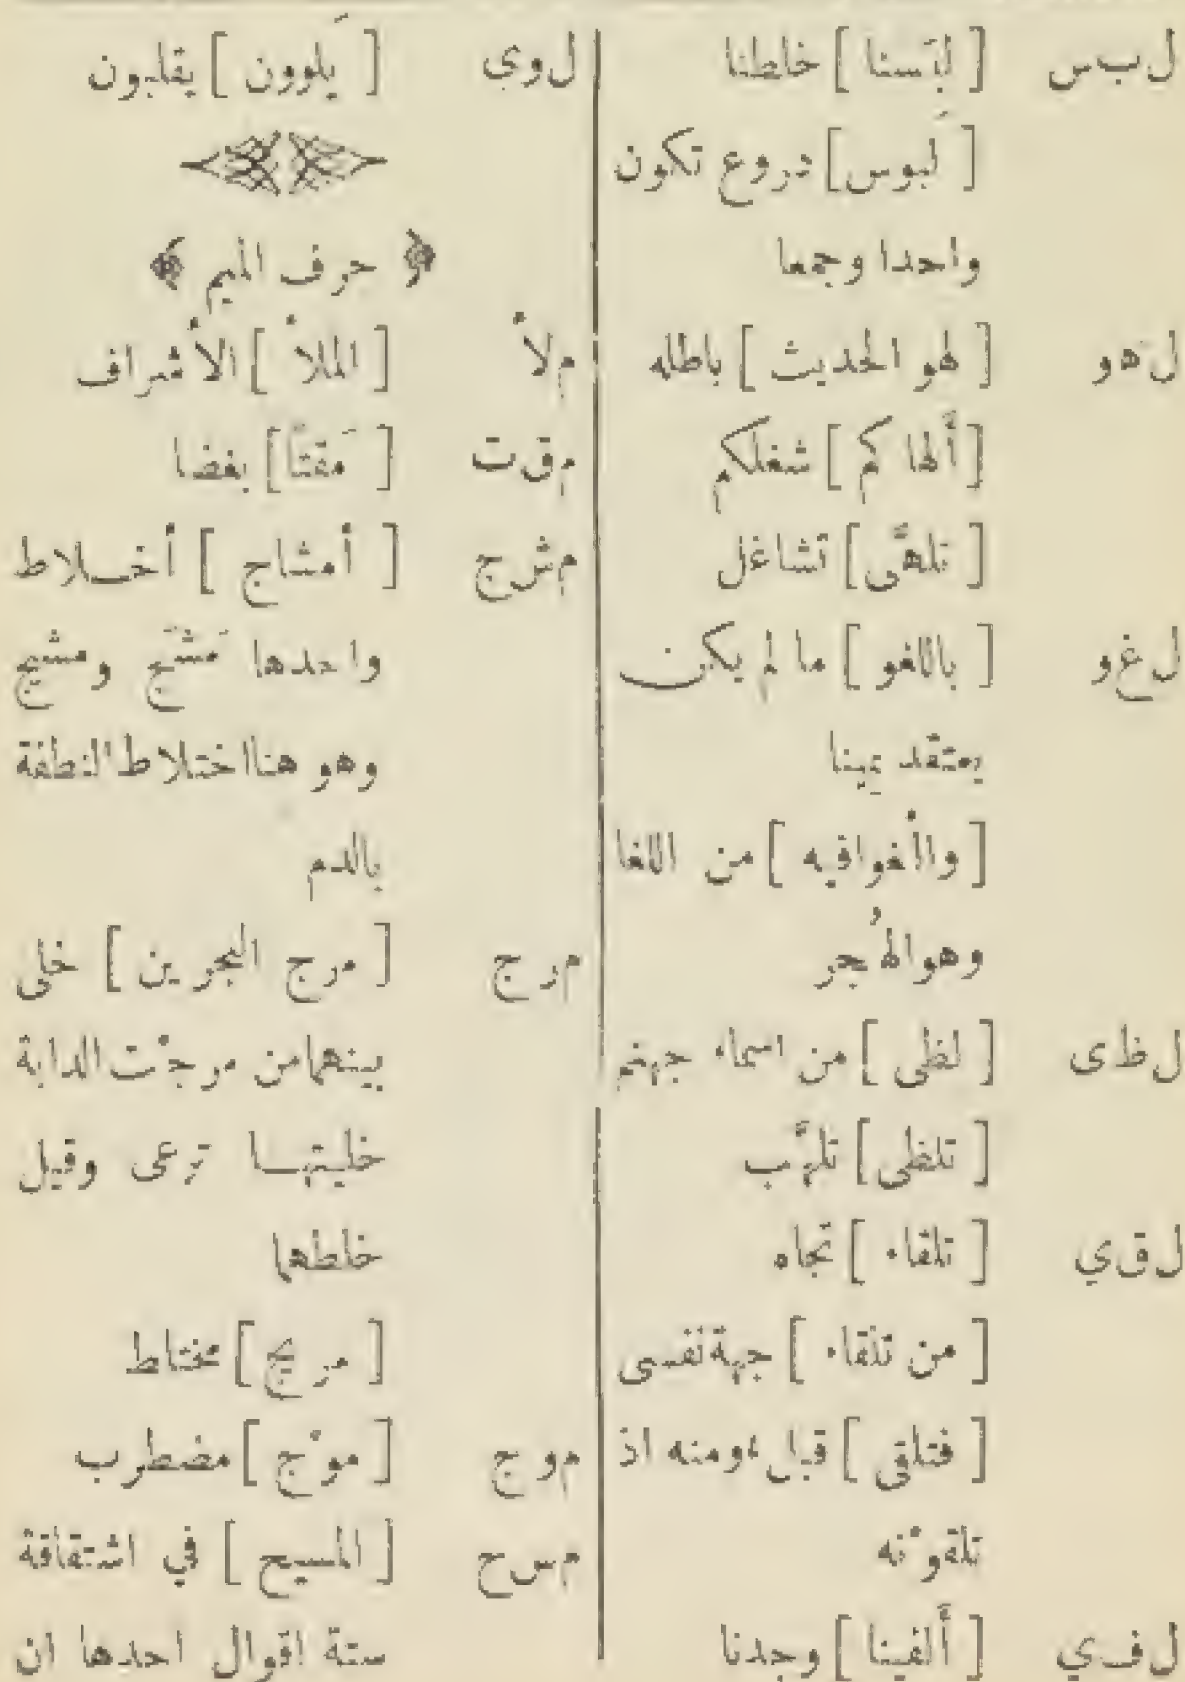 ل ب س [ لبَسنا ] خلطنا
[ لَبوس ] دروع تكون
واحدا وجمعا
ل هو [ لهو الحديث ] باطله
[ ألها كم ] شغلكم
[ تلهَّى ] تشاغل
ل غ و [ باللغو ] ما لم يكن
يعتقد يمينا
[ والْغوافيه ] من اللغا
وهوالهُجر
ل ظ ى [ لظى ] من اسماء جهنم
[ تلظى ] تلهَّب
ل ق ي [ تلقاء ] تجاه
[ من تلقاء ] جهة نفسى
[ فتلقى ] قبل ، ومنه اذ
تلقوْنه
ل ف ي [ ألفينا ] وجدنا
ل و ي [ يَلوون ] يقلبون
﴿ حرف الميم ﴾
م لأ [ الملأ ] الأشراف
م ق ت [ مَقتاً ] بغضا
م ش ج [ أمشاج ] أخلاط
واحدها مَشَج ومشيج
وهو هنااختلاط النطفة
بالدم
م ر ج [ مرج البحرين ] خلى
بينهمامن مرجْت الدابة
خليتها ترعى وقيل
خلطهما
[ مريج ] مختلط
م و ج [ موْج ] مضطرب
م س ح [ المسيح ] في اشتقاقة
ستة اقوال احدها ان